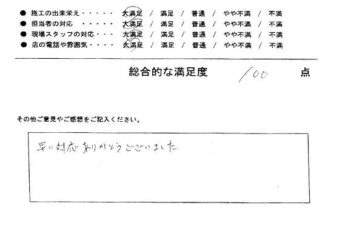 ● 施工の出来栄え・・・・・ 大満足 / 満足 / 普通 / やや不満 / 不満
● 担当者の対応・・・・・ 大満足 / 満足 / 普通 / やや不満 / 不満
● 現場スタッフの対応・・・ 大満足 / 満足 / 普通 / やや不満 / 不満
● 店の電話や雰囲気・・・・ 大満足 / 満足 / 普通 / やや不満 / 不満
総合的な満足度 100 点
その他ご意見やご感想をご記入ください。
早い対応ありがとうございました